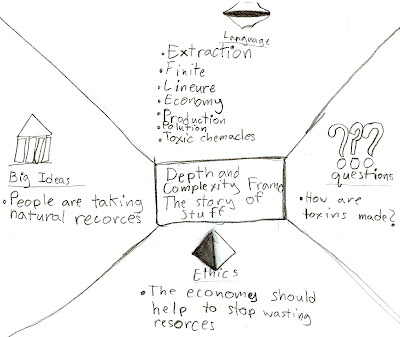 Language
• Extraction
• Finite
• Lineure
• Economy
• Production
• Polution
• Toxic chemacles
Big Ideas
• People are taking
natural recorces
Depth and
Complexity Frame
The story of
Stuff
???
questions
• How are
toxins made?
Ethics
• The economy should
help to stop wasting
resorces